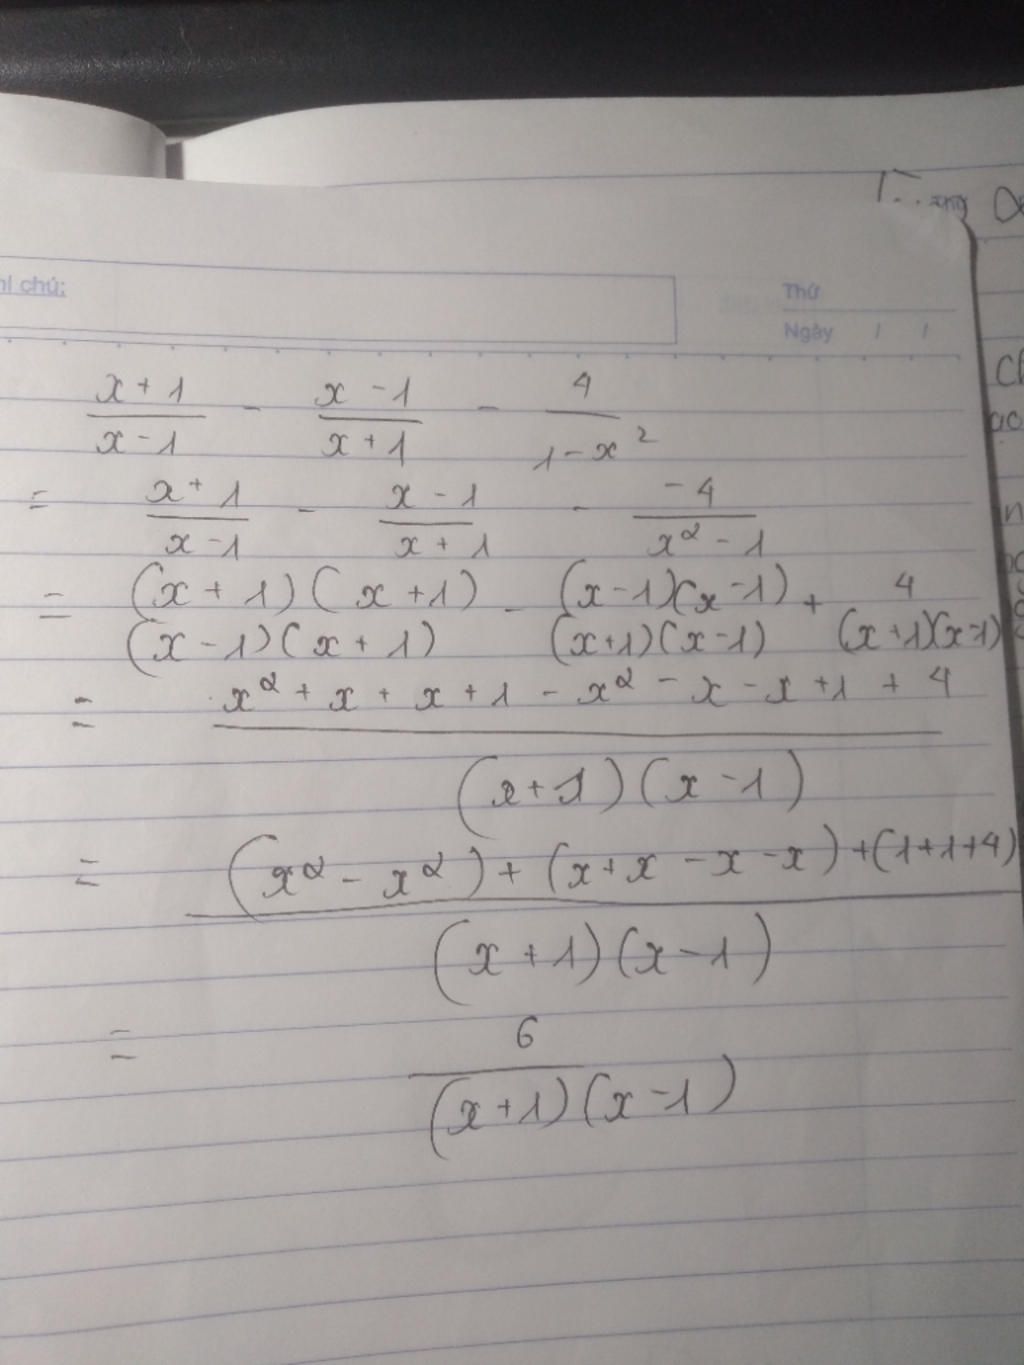 Thứ
Ngày / /
x + 1 / x - 1 - x - 1 / x + 1 - 4 / 1 - x²
= x + 1 / x - 1 - x - 1 / x + 1 - -4 / x² - 1
= (x + 1)(x + 1) / (x - 1)(x + 1) - (x - 1)(x - 1) / (x + 1)(x - 1) + 4 / (x + 1)(x - 1)
= x² + x + x + 1 - x² - x - x + 1 + 4 / (x + 1)(x - 1)
= (x² - x²) + (x + x - x - x) + (1 + 1 + 4) / (x + 1)(x - 1)
= 6 / (x + 1)(x - 1)